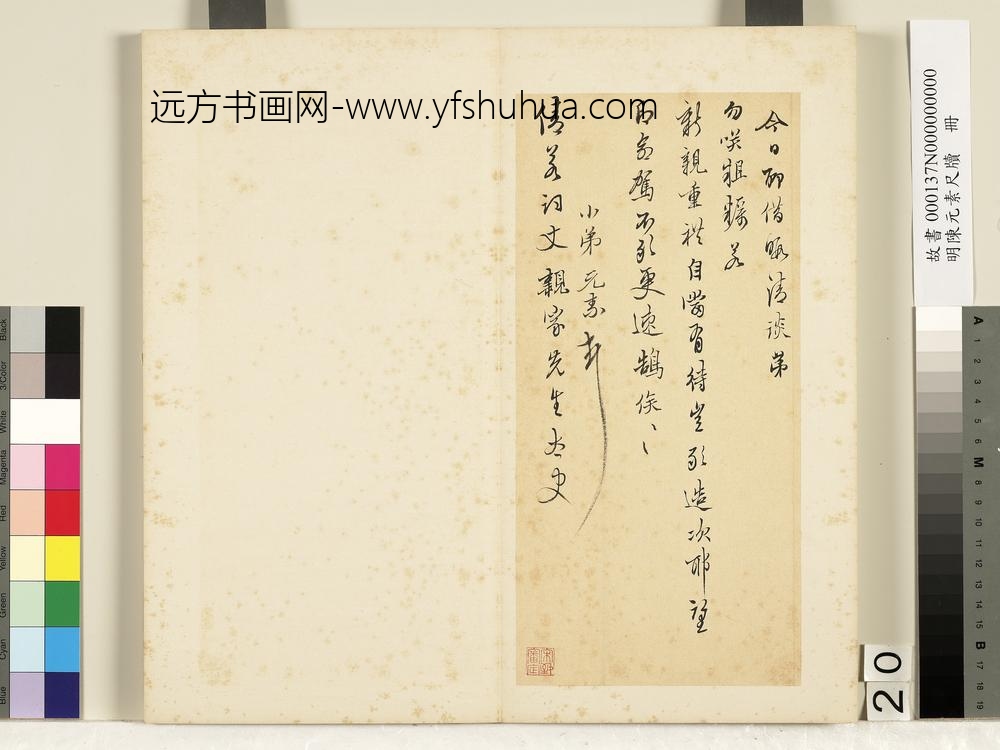 今日聊借暇清談弟
勿咲粗糲若
新親重禮自當有待豈敢造次耶望
即命駕不敢更速鵠俟〻
小弟元素
清若詞丈親家先生太史
远方书画网-www.yfshuhua.com
故書 000137N000000000
明陳元素尺牘 冊
20
Black
3/Color
White
Magenta
Red
Yellow
Green
Cyan
Blue
A 1 2 3 4 5 6 M 8 9 10 11 12 13 14 15 B 17 18 19